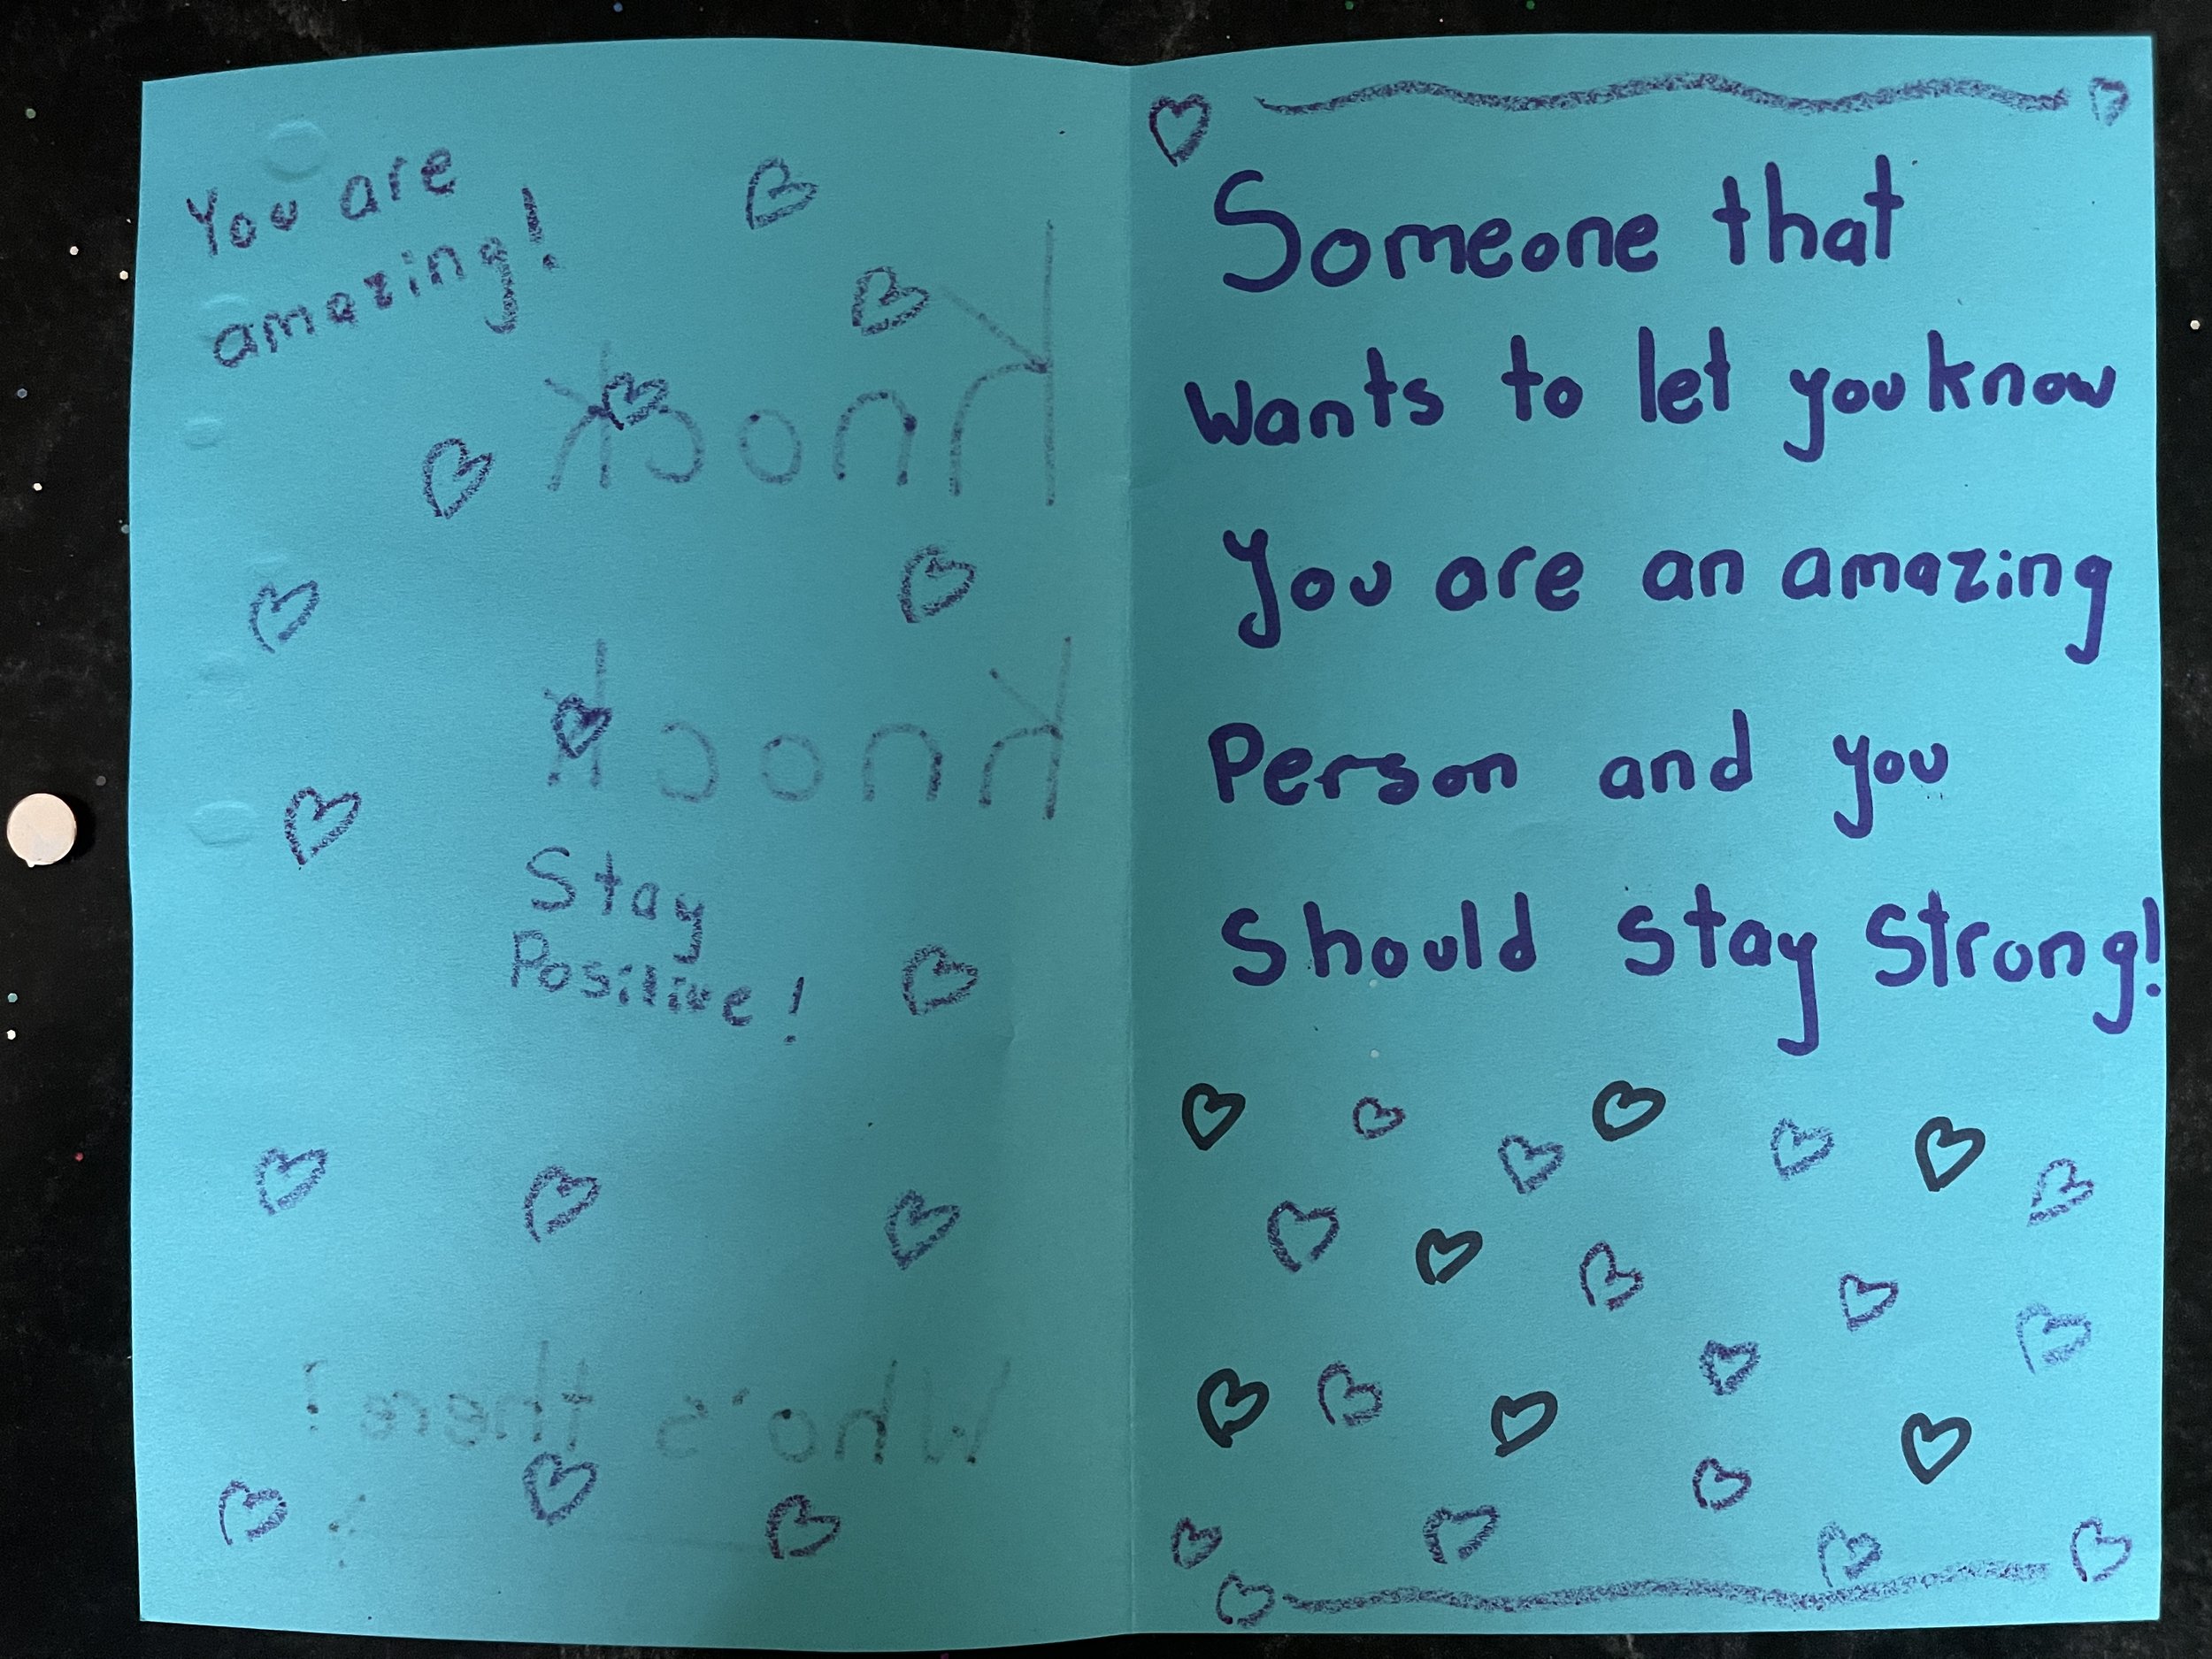 You are
amazing!
Knock
Knock
Stay
Positive!
Who's there!
Someone that
Wants to let you know
You are an amazing
Person and you
Should stay Strong!